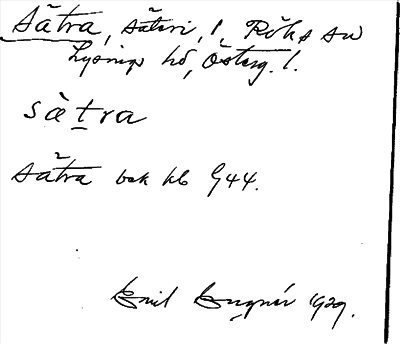 Sätra, säteri, !, Röks sn
Lysings hd, Österg. l.
sætra
Sätra bok kb G44.
Emil 1929.